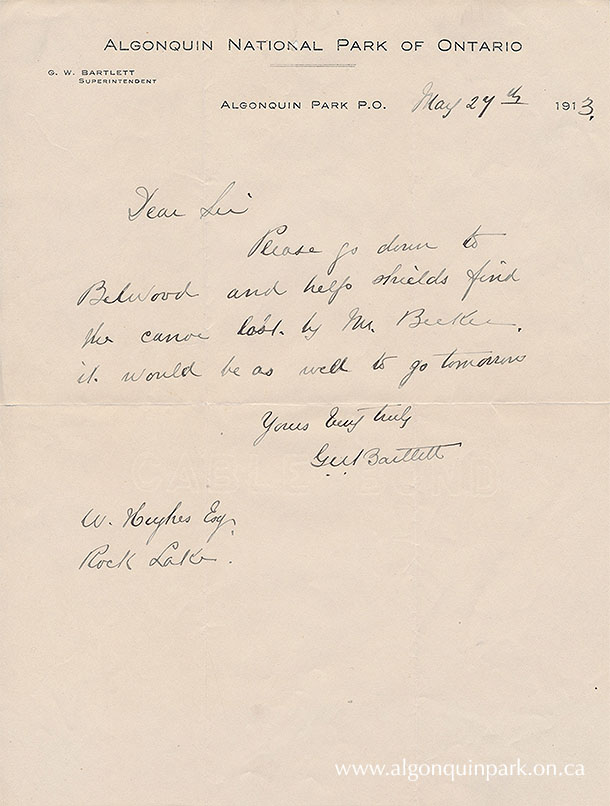 ALGONQUIN NATIONAL PARK OF ONTARIO
G. W. BARTLETT
SUPERINTENDENT
ALGONQUIN PARK P.O. May 27th 1913.
Dear Sir
Please go down to
Belwood and help shields find
the canoe lost by Mr. Becker.
it would be as well to go tomorrow
Yours very truly
GW Bartlett
W. Hughes Esq.
Rock Lake.
www.algonquinpark.on.ca